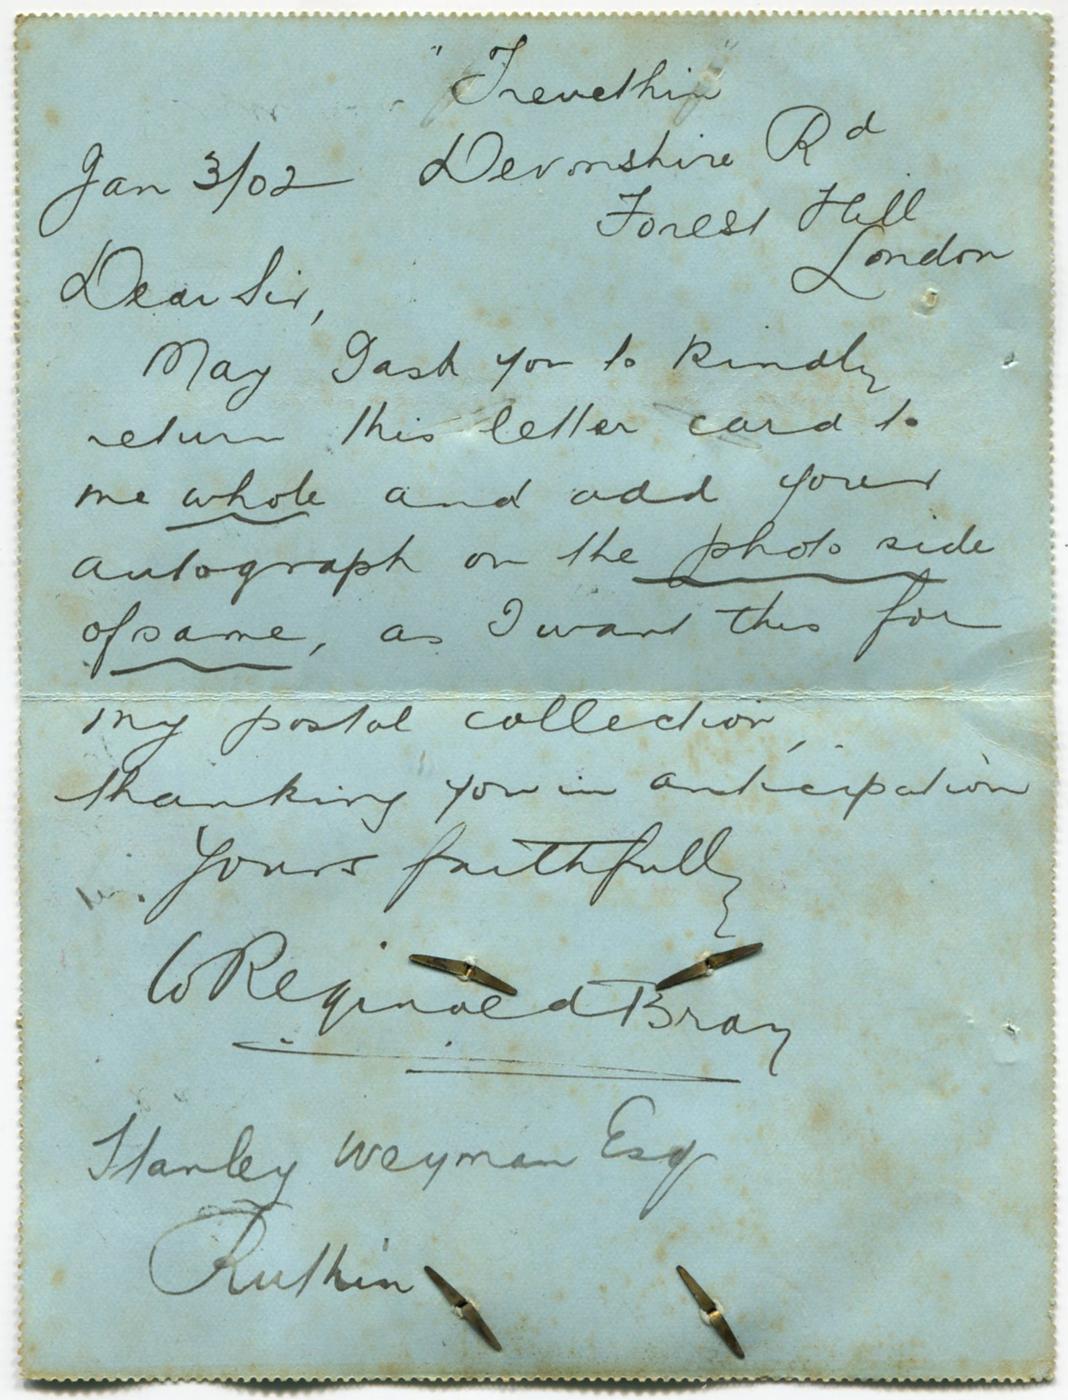 "Trevethin"
Jan 3/02 Devonshire Rd
Forest Hill
London
Dear Sir,
May I ask you to kindly
return this letter card to
me whole and add your
autograph on the photo side
of same, as I want this for
my postal collection,
thanking you in anticipation
Yours faithfully
W Reginald Bray
Stanley Weyman Esq
Ruthin